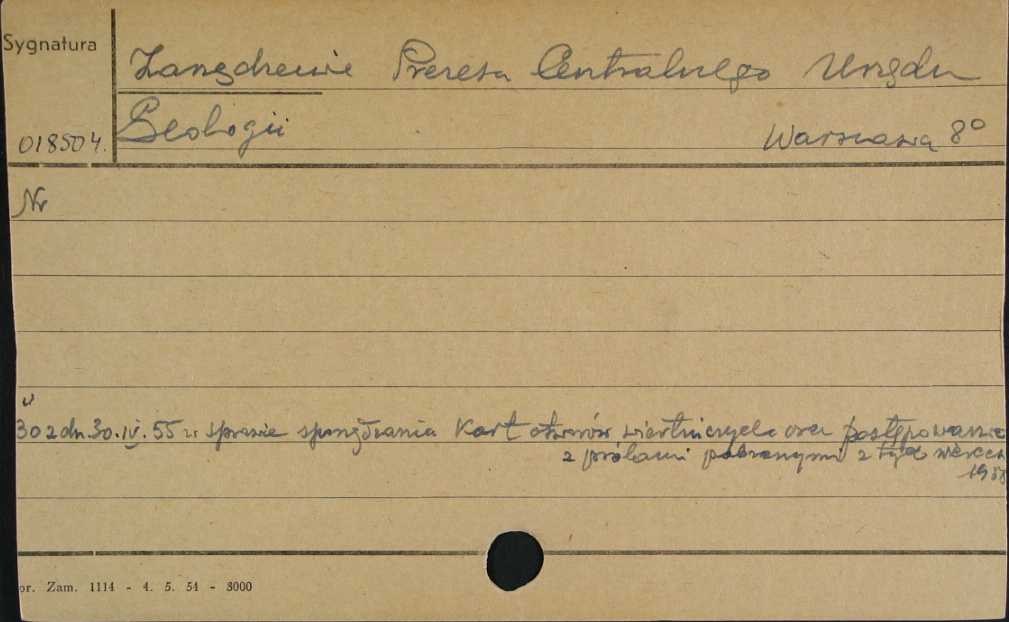 Sygnatura
Zarządzenie Prezesa Centralnego Urzędu
018504. Geologii Warszawa 8°
Nr
30 z dn. 30.IV.55 w sprawie sporządzania kart otworów wiertniczych oraz postępowania
z próbami pobranymi z tych
or. Zam. 1114 - 4. 5. 54 - 3000